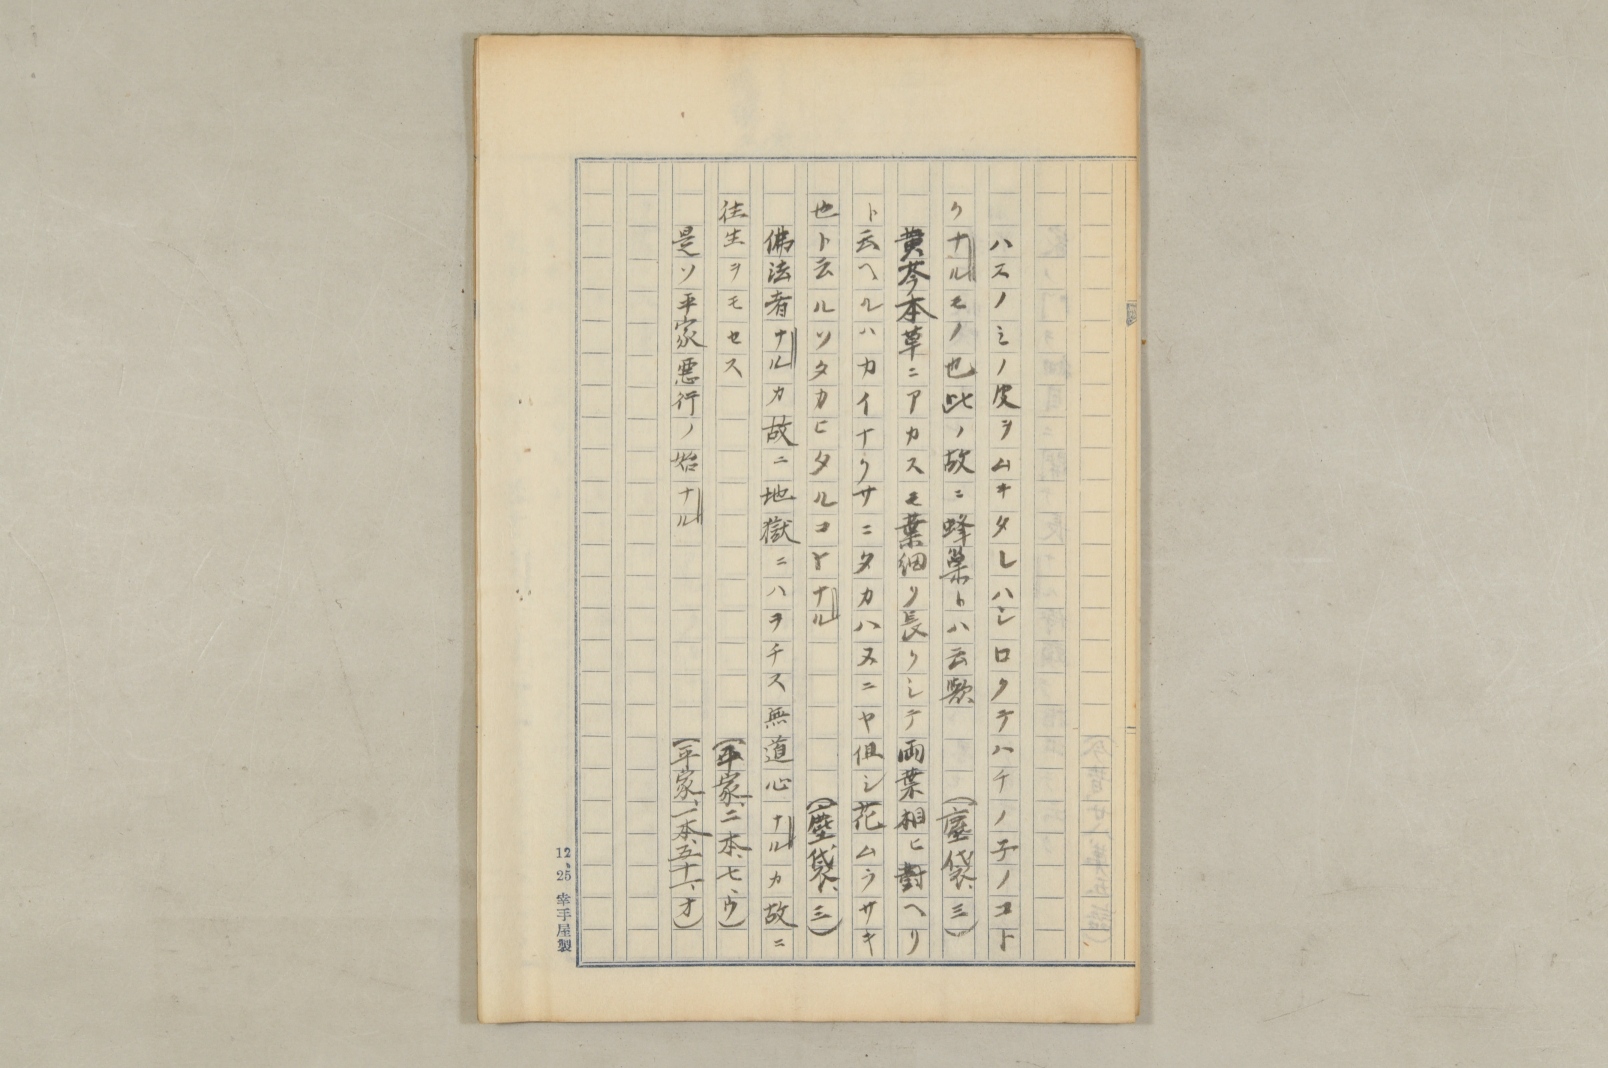 ハスノミノ皮ヲムキタレハシロクテハチノ子ノコト
クナルモノ也此ノ故ニ蜂巣トハ云歟 (塵袋、三)
黄芩本草ニアカスモ葉細ク長クシテ両葉相ヒ對ヘリ
ト云ヘルハカイナクサニタカハヌニヤ但シ花ムラサキ
也ト云ルソタカヒタルコトナル (塵袋、三)
佛法者ナルカ故ニ地獄ニハヲチス無道心ナルカ故ニ
往生ヲモセス (平家、二本、七、ウ)
是ソ平家悪行ノ始ナル (平家、一本、五十一、オ)
12、25 幸手屋製